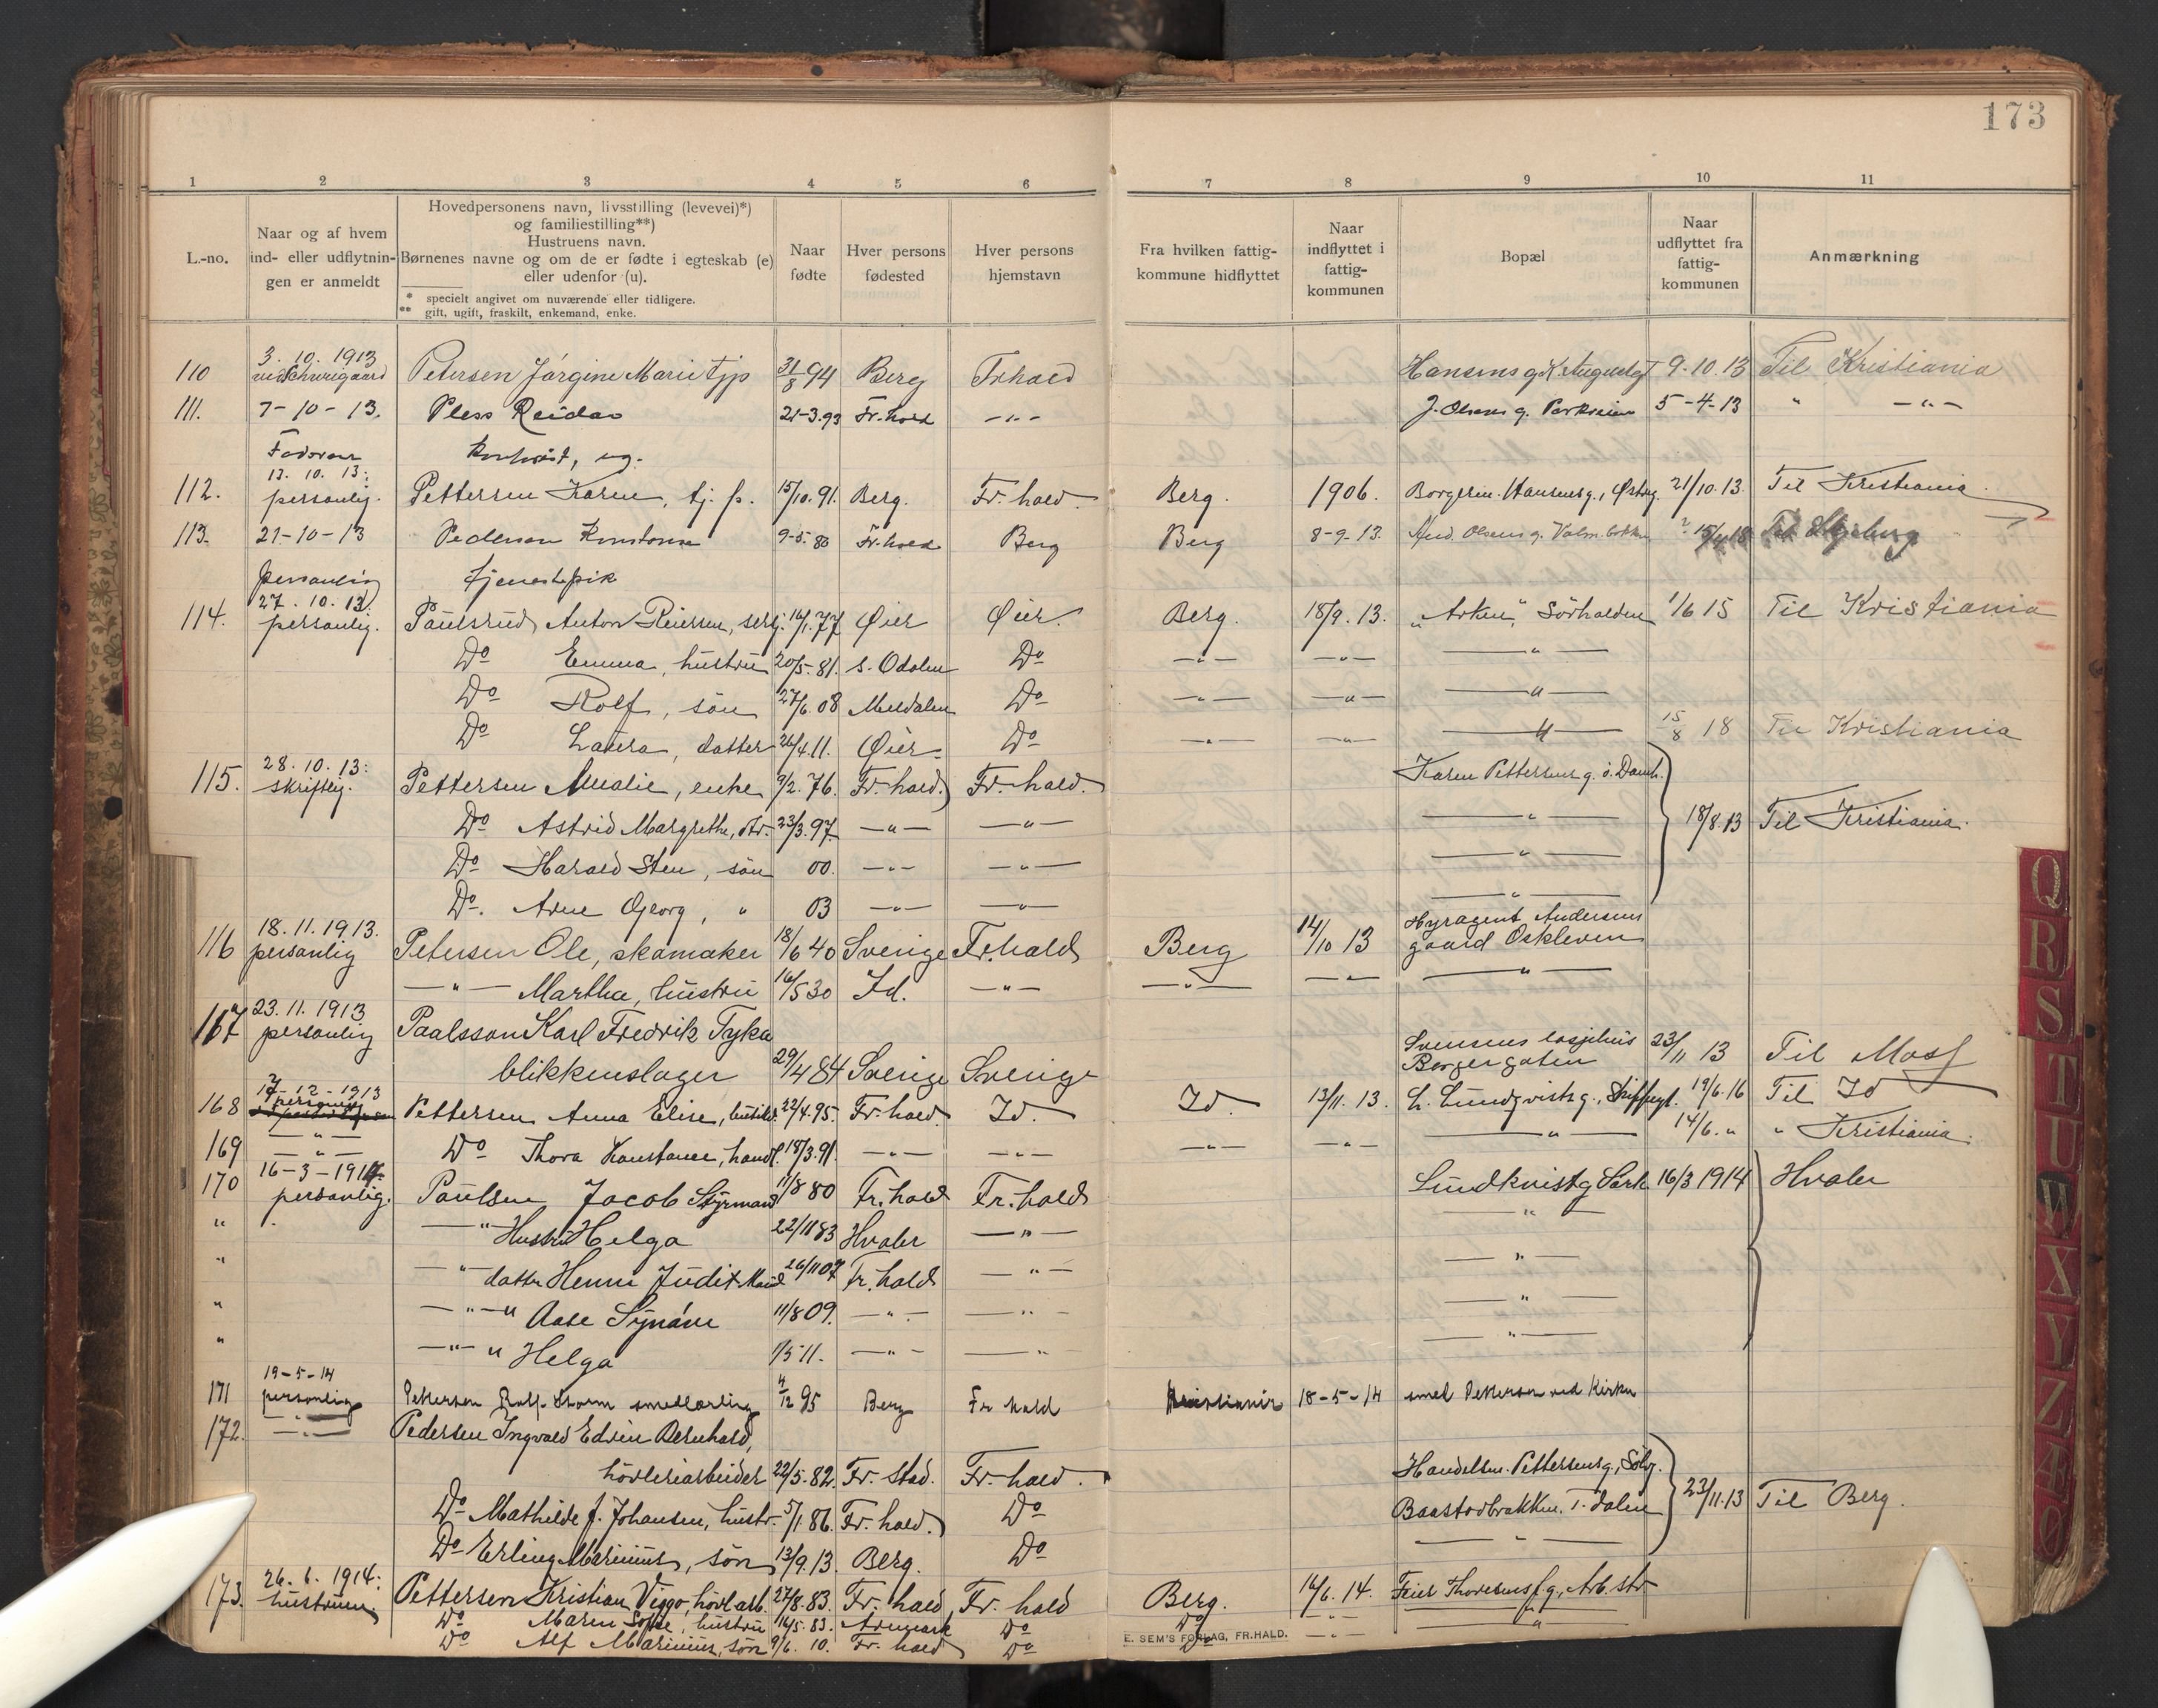 173
1 2 3 4 5 6 7 8 9 10 11
L.-no.
Naar og af hvem
ind- eller udflytnin-
gen er anmeldt
Hovedpersonens navn, livsstilling (levevei)*)
og familiestilling**)
Hustruens navn.
Børnenes navne og om de er fødte i egteskab (e)
eller udenfor (u).
* specielt angivet om nuværende eller tidligere.
** gift, ugift, fraskilt, enkemand, enke.
Naar
fødte
Hver persons
fødested
Hver persons
hjemstavn
Fra hvilken fattig-
kommune hidflyttet
Naar
indflyttet i
fattig-
kommunen
Bopæl
Naar
udflyttet fra
fattig-
kommunen
Anmærkning
3. 10. 1913
110 Petersen Jørgine Marie tjp 31/8 94 Berg Frhald 9-10.13 Til Kristiania
111. 7-10-13. Pless Reidar 21-3.93 Fr.hald -"- J. Olsens g. 5-4-13 " -"-
ug.
13. 10. 13:
112. personlig. Pettersen Karen, tj. p. 15/10.91. Berg. Fr. hald. Berg. 1906. Hansensg., 21/10.13. Til Kristiania.
113. 21-10-13 Pedersen 9-5-86 Fr.hald Berg Berg 8-9-13. And. Olsens g.
personlig tjenestepik
27. 10. 13.
114. personlig. Paulsrud, Anton Reiersen, 16/1.77 Øier Øier. Berg. 18/9.13. "Arken", Sörhalden 1/6 15 Til Kristiania
Do Emma, hustru 20/5-81. s. Odalen Do -"- -"- -"-
Do Rolf, sön 27/6.08 Meldalen Do -"- -"- -"-
Do Laura, datter 26/4.11. Øier. Do -"- -"- -"- 15/8 18 Til Kristiania
28. 10. 13:
115. skriftlig. Pettersen Amalie, enke 9/2.76. Fr. hald. Fr. hald. Karen Pettersens g. ö. Damh.
Do Astrid Margrethe, dtr. 23/3.97. -"- -"- -"- 18/8.13 Til Kristiania.
Do Harald Sten, sön 00. -"- -"- -"-
Do. Arne Georg, " 03 -"- -"- -"-
18.11.1913. Hyragent Andersens
116 personlig Petersen Ole, skomaker 18/6 40 Sverige Fr.hald Berg 14/10 13 gaard Oskleven
-"- Martha, hustru 16/5 30 Id. -"- -"- -"- -"-
23.11.1913
167 personlig Paalsson Karl Fredrik Tyko
blikkenslager 29/4 84 Sverige Sverige Svensens losjihus 23/11 13 Til Moss
Borgergaten
17-12-1913
168 personlig Pettersen Anna Elise, 22/4.95. Fr. hald. Id. Id. 13/11.13. L. Lundqvists g., 19/6.16 Til Id
169 -"- Do Thora Konstance, handl. 18/3.91. -"- -"- -"- -"- -"- 14/6. " " Kristiania.
16-3-1914
170 personlig. Paulsen Jacob Styrmand 11/8 80 Fr. hald Fr. hald Lundkvistg 16/3 1914 Hvaler
" -"- Hustru Helga 22/11 83 Hvaler -"- -"-
" -"- datter Henni Judit 26/11 07 Fr. hald -"- -"-
" -"- " Aase Synöve 11/8 09. -"- -"- -"-
" -"- " Helga 1/5 11. -"- -"- -"-
19-5-14
171 personlig Pettersen Rolf Storm smedlærling 4/12 95 Berg Fr hald Kristiania 18-5-14 smed Petterson ved Kirken
172. -"- Pedersen Ingvald Edvin Bernhard,
hövleriarbeider 22/5.82. Fr. stad. Fr. hald. Handelsm. Pettersens g.,
Do Mathilde J. Johansen, hustr. 5/1.86. Fr. hald. Do Baastadbrakken. T. dalen 23/11.13 Til Berg.
Do Erling Marinius, sön 13/9.13. Berg. Do -"-
26. 6. 1914:
173. hustruen. Pettersen Kristian Viggo, hövl.arb. 27/8.83. Fr. hald Fr. hald Berg. 16/6.14. Feier Thoresens g., Arb. str.
Do Maren Sofie, hustru 16/5.83. Aremark Do Do -"- -"-
Do Alf Marinius, sön 9/6. 10. Fr. hald Do Do -"-
E. SEM'S FORLAG, FR.HALD.
Q
R
S
T
U
W
X
Y
Z
Æ
Ø